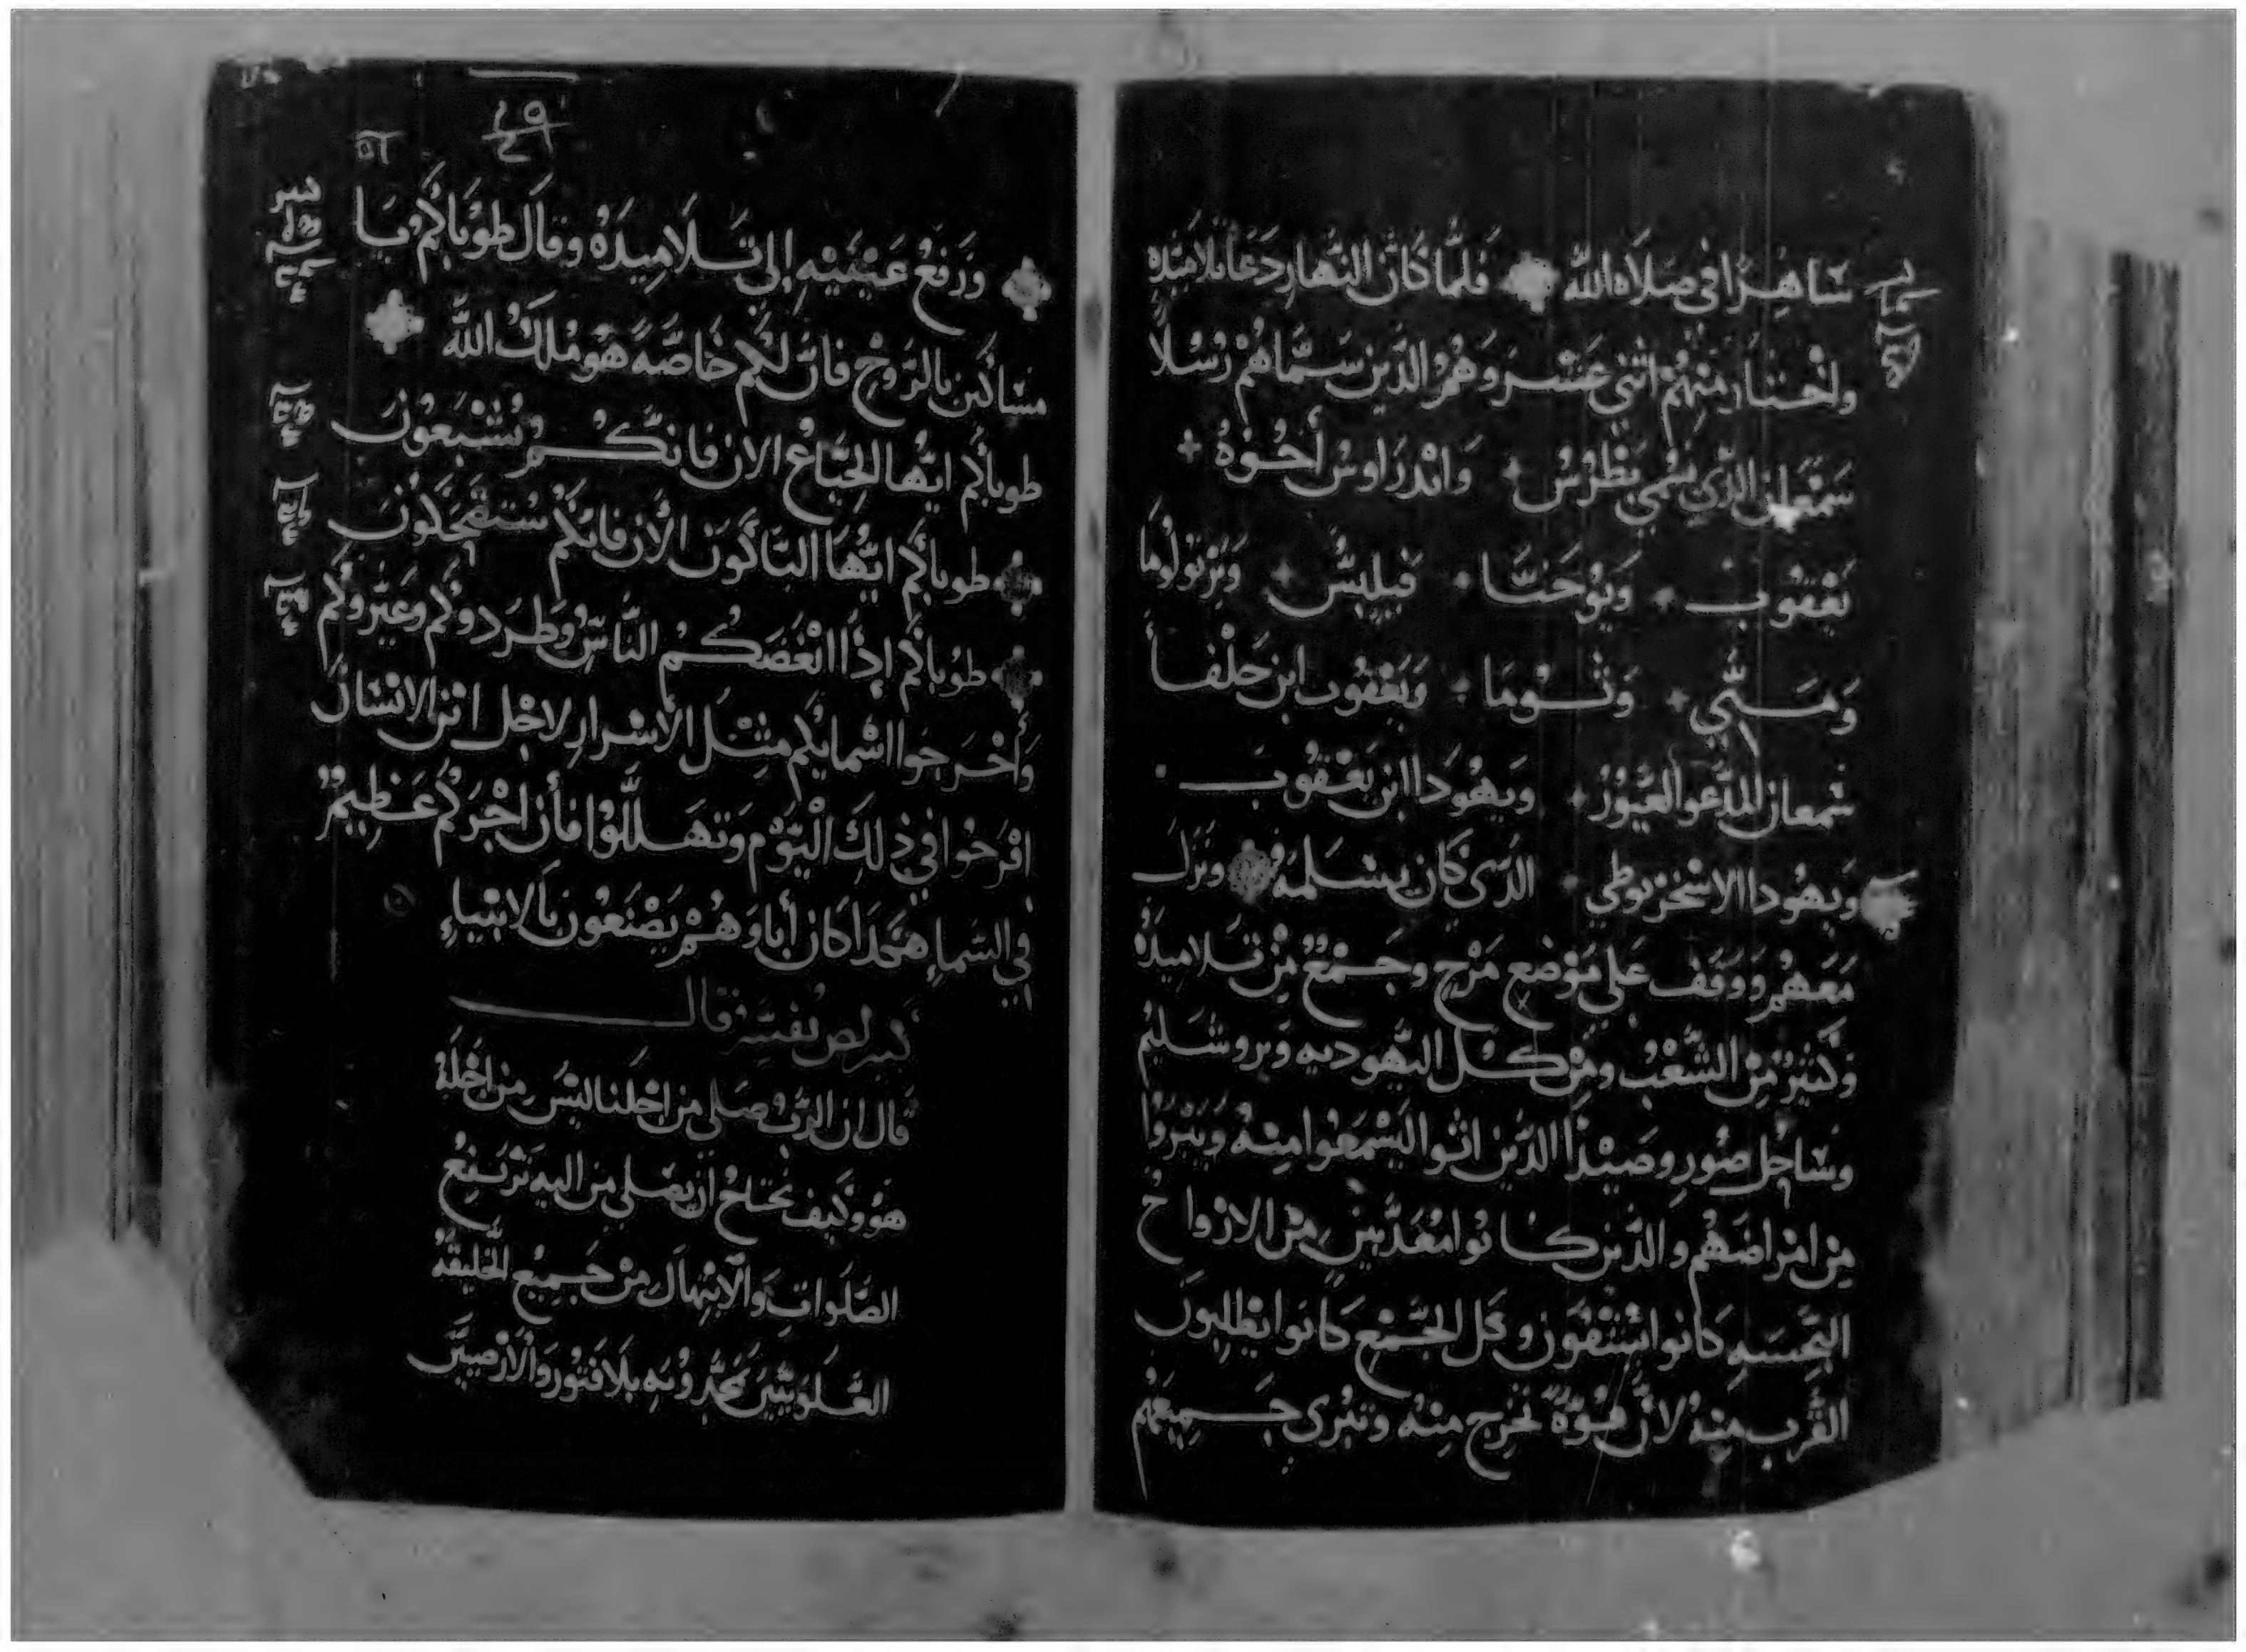 ساهرًا في صلاه الله فلما كان النهار دعا تلاميذه
واختار منهم اثني عشر وهم الذين سماهم رسلًا
سمعان الذي سمي بطرس واندراوس أخوه
يعقوب ويوحنا فيلبس وبرتولوما
ومتي وتوما ويعقوب ابن حلفا
شمعان المدعو الغيور ويهودا ابن يعقوب
ويهودا الاسخريوطي الدى كان يسلمه ونزل
معهم ووقف علي موضع مرج وجمع من تلاميده
وكثير من الشعب ومن كل اليهوديه ويروشليم
وساحل صور وصيدا الدين اتوا ليسمعوا منه ويبروا
من امراضهم والدين كانوا معذبين من الارواح
النجسه كانوا يشتفون وكل الجمع كانوا يطلبون
القرب منه لان قوة تخرج منه وتبرى جميعهم
٤٩
ورفع عينيه إلي تلاميده وقال طوباكم يا
مساكين بالروح فان لكم خاصة هو ملك الله
طوباكم ايها الجياع الان فانكم تشبعون
طوباكم ايها الباكون الأن فانكم ستضحكون
طوباكم إذا ابغضكم الناس وطردوكم وعيروكم
وأخرجوا اسمايكم مثل الأشرار لاجل ابن الانسان
افرحوا في ذلك اليوم وتهللوا فأن اجركم عظيم
في السماء هكذا كان أباوهم يصنعون بالانبياء
كيرلص يفسر قال
قال ان الرب صلي من اجلنا ليس من اجله
هو وكيف يحتاج ان يصلي من اليه ترتفع
الصلوات والابتهال من جميع الخليقة
العلويين يمجدونه بلا فتور والأرضيين